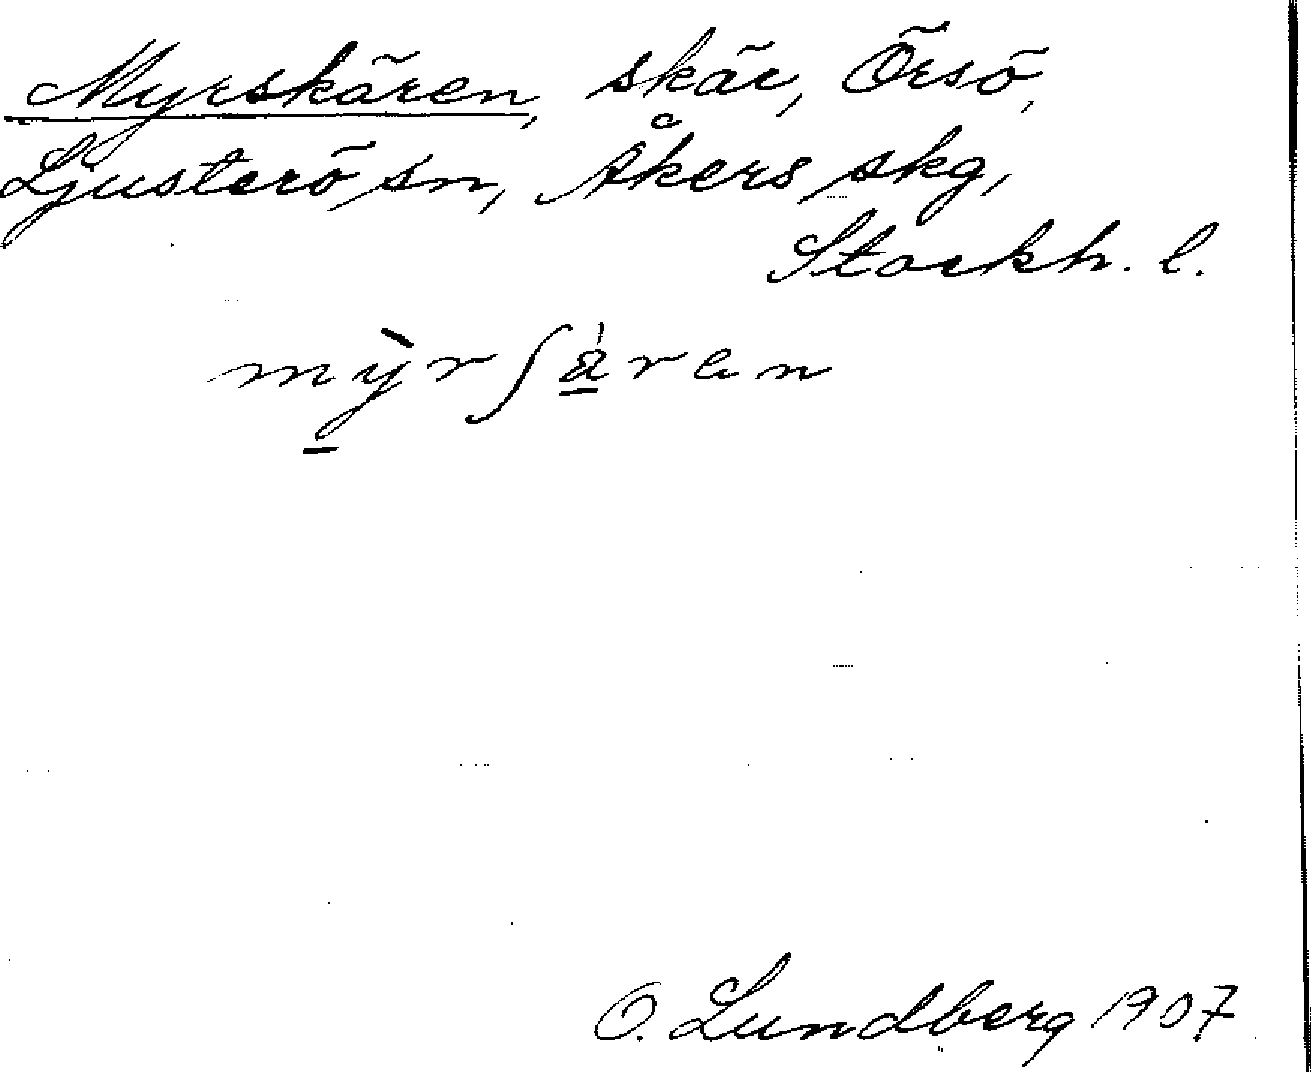 Myrskären, skär, Örsö,
Ljusterö sn, Åkers skg,
Stockh. l.
mỳrʃä̀ren
O. Lundberg 1907